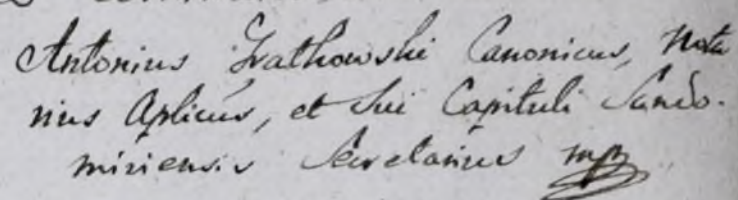 Antonius Frathowski Canonicus, Nota
rius Aplicus, et sui Capituli Sando-
miriensis Secretarius mp